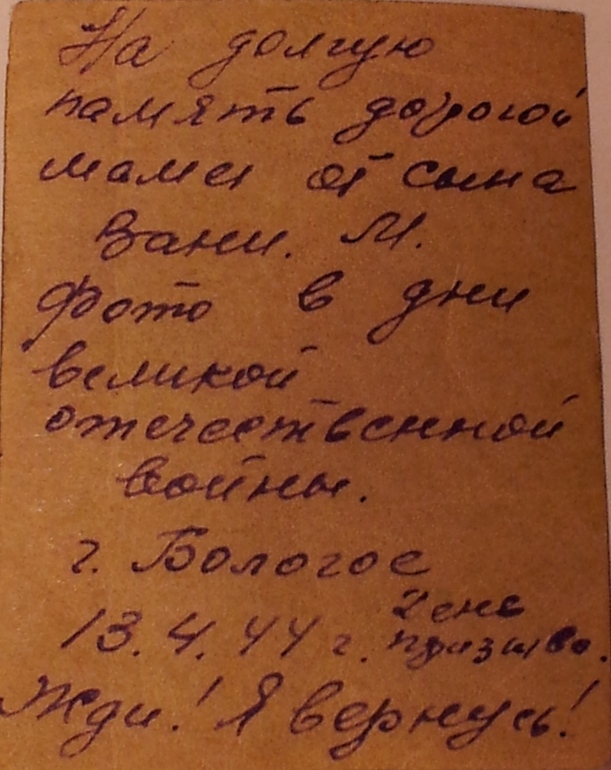 На долгую
память дорогой
мамы от сына
Вани. М.
Фото в дни
великой
отечественной
войны.
г. Бологое
День
13.4.44 г. призыва.
Жди! Я вернусь!